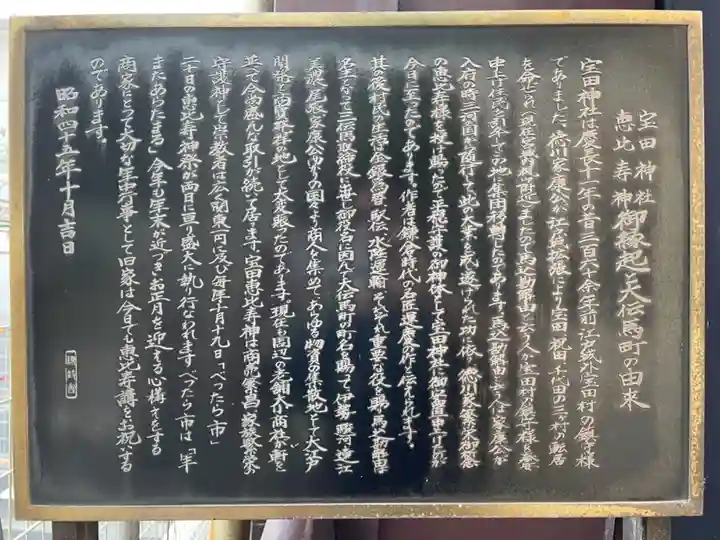 宝田神社
恵比寿神 御縁起と大伝馬町の由来
宝田神社は慶長十一年の昔三百六十余年前江戸城外宝田村の鎮守様
でありました。徳川家康公が江戸城拡張により宝田、祝田、千代田の三ヶ村の転居
を命ぜられ(現在宮城内楠附近)ましたので馬込勘解由と云う人が宝田村の鎮守様を奉
申上げ住民を引卒してこの地に集団移動したのであります。馬込勘解由と云う人は家康公が
入府の時三河国から随行して此の大業を成し遂げられた功に依り、徳川家繁栄御祈念
の恵比寿様を授け賜ったので平穏守護の御神体として宝田神社に御安置申上げたのが
今日に至ったのであります。作者は鎌倉時代の名匠運慶の作と伝えられます。
其の後村民の生活は金銀為替、駅伝、水陸運輸、それぞれ重要な役を賜り馬込勘解由は
名主となって三伝馬取締役に出世し御役名に因んで大伝馬町の町名を賜って伊勢、駿河、遠江
美濃、尾張、家康公ゆかりの国々より商人を集めて、あらゆる物資の集散地として大江戸
開発と商賈発祥の地として大変賑ったのであります。現在も周辺の老舗大小商社が軒を
並べて今尚盛んな取引が続いて居ります。宝田恵比寿神は商売繁昌、家族繁栄の
守護神として崇敬者は広く関東一円に及び毎年十月十九日「べったら市」
二十日の恵比寿神祭が両日に亘り盛大に執り行なわれます。べったら市は「年
またあらたまる」今年も年末が近づきお正月を迎える心構えをする
商家にとって大切な年中行事として旧家は今日でも恵比寿講をお祝いする
のであります。
昭和四十五年十月吉日